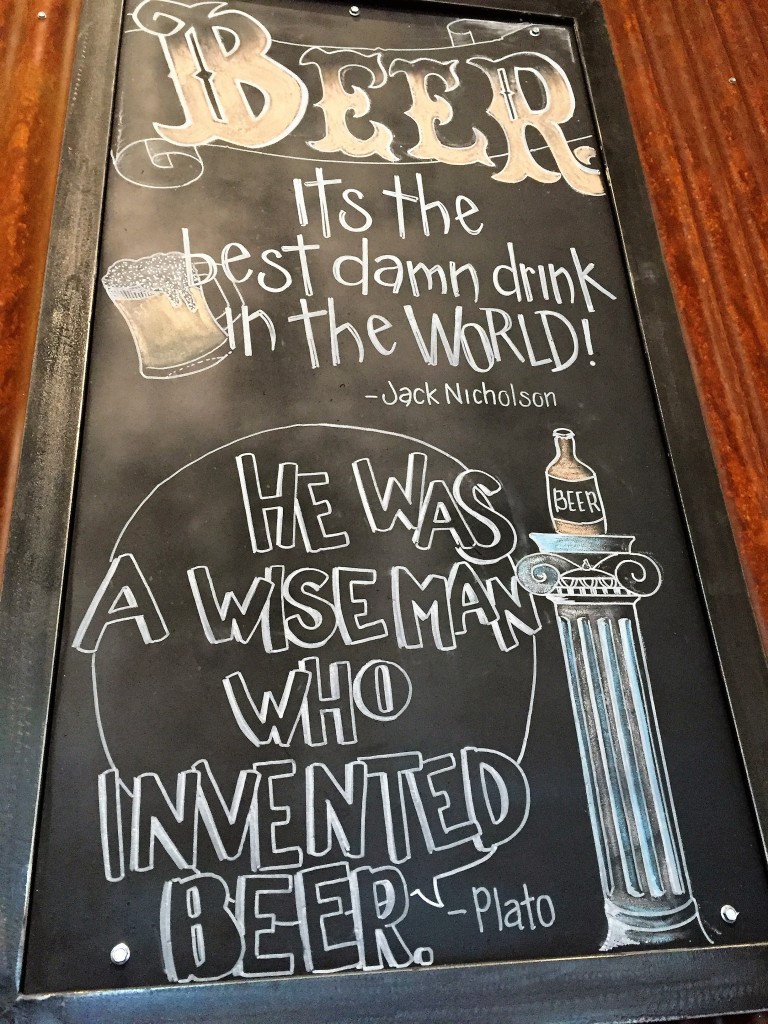 BEER.
Its the
best damn drink
in the WORLD!
-Jack Nicholson
BEER
HE WAS
A WISE MAN
WHO
INVENTED
BEER.
-Plato